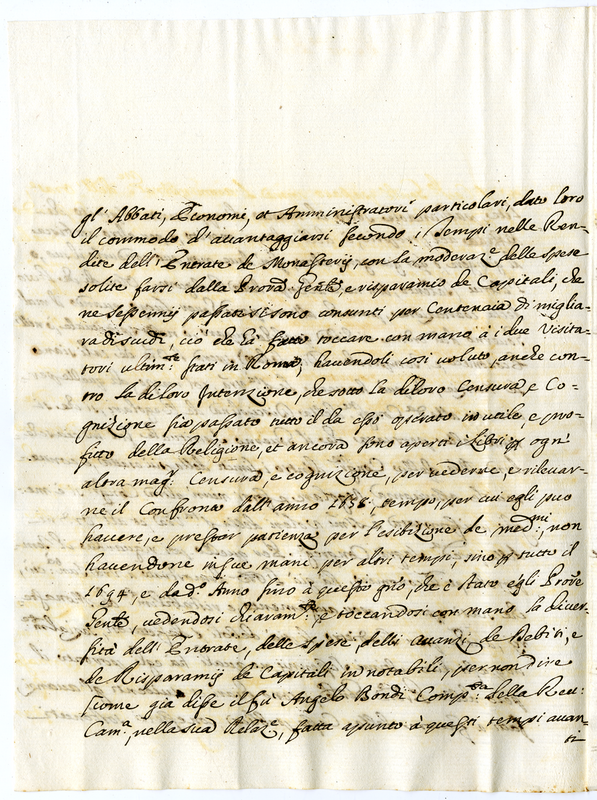 gl' Abbati, Economi, et Amministratori particolari, dato loro
il commodo d'auantaggiarsi secondo i Tempi nelle Ren-
dite dell' Entrate de Monasterij, con la moderaz.e delle spese
solite farsi dalla Procra Genle, e risparamio de Capitali, che
ne sessennij passati si sono consunti per Centenaia di miglia-
ra di scudi, ciò che hà fatto toccare con mano à i due Visita-
tori ultim.te stati in Roma, hauendoli così voluto, anche con-
tro la di loro Intenzione, che sotto la di loro Censura, e Co-
gnizione sia passato tutto il da esso operato in utile, e pro-
fitto della Religione, et ancora sono aperti i Libri ꝑ ogn'
altra mag.r Censura, e cognizione, per vederne, e rileuar-
ne il Confronto dall' anno 1658, tempo, per cui egli puo
hauere, e prestar patienza per l'esibizione de med.mi, non
hauendone in sue mani per altri tempi, sino ꝑ tutto il
1694, e da d.o Anno fino à questo gno, che è stato egli Prore
Genle, vedendosi chiaram.te, e toccandosi con mano la diuer-
sità dell' Entrate, delle spese, delli auanzi, de Debiti, e
de Risparamij de Capitali in notabili, per non dire
sicome già disse il fù Angelo Bondi Comp.sta della Reu:
Cam.a, nella sua Relaz.e, fatta apunto à questi tempi auan-
ti